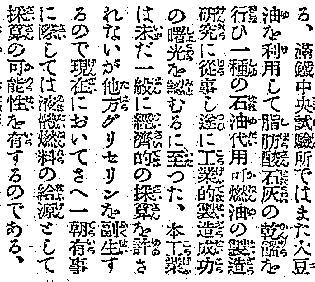 る、滿鐵中央試驗所ではまた大豆
油を利用して脂肪酸石灰の乾餾を
行ひ一種の石油代用可燃油の製造
研究に從事し遂に工業的製造成功
の曙光を認むるに至つた、本工業
は未だ一般に經濟的の採算を許さ
れないが他方グリセリンを副生す
るので現在においてさへ一朝有事
に際しては液體燃料の給源として
採算の可能性を有するのである、